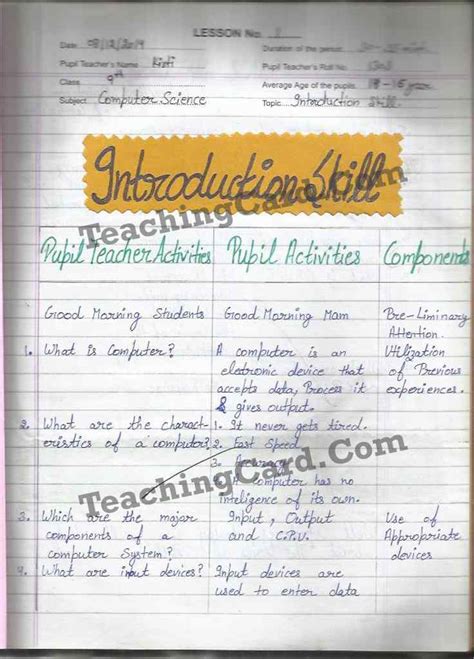 LESSON No. 1
Date 08/12/2014 Duration of the period
Pupil Teacher's Name Kirti Pupil Teacher's Roll No. 1303
Class 9th Average Age of the pupils 14 - 15 year
Subject Computer Science Topic Introduction Skill.
Introduction Skill
TeachingCard.Com
Pupil Teacher Activities Pupil Activities Components
Good Morning Students Good Morning Mam Pre-Liminary
Attention.
1. What is Computer? A computer is an Utilization
electronic device that of Previous
accepts data, Process it experiences.
& gives output.
2. What are the charact- 1. It never gets tired.
eristics of a computer? 2. Fast Speed
3. Accuracy
TeachingCard.Com
4. A computer has no
inteligence of its own.
3. Which are the major Input, Output Use of
components of a and C.P.U. Appropriate
computer System? devices
4. What are input devices? Input devices are
used to enter data